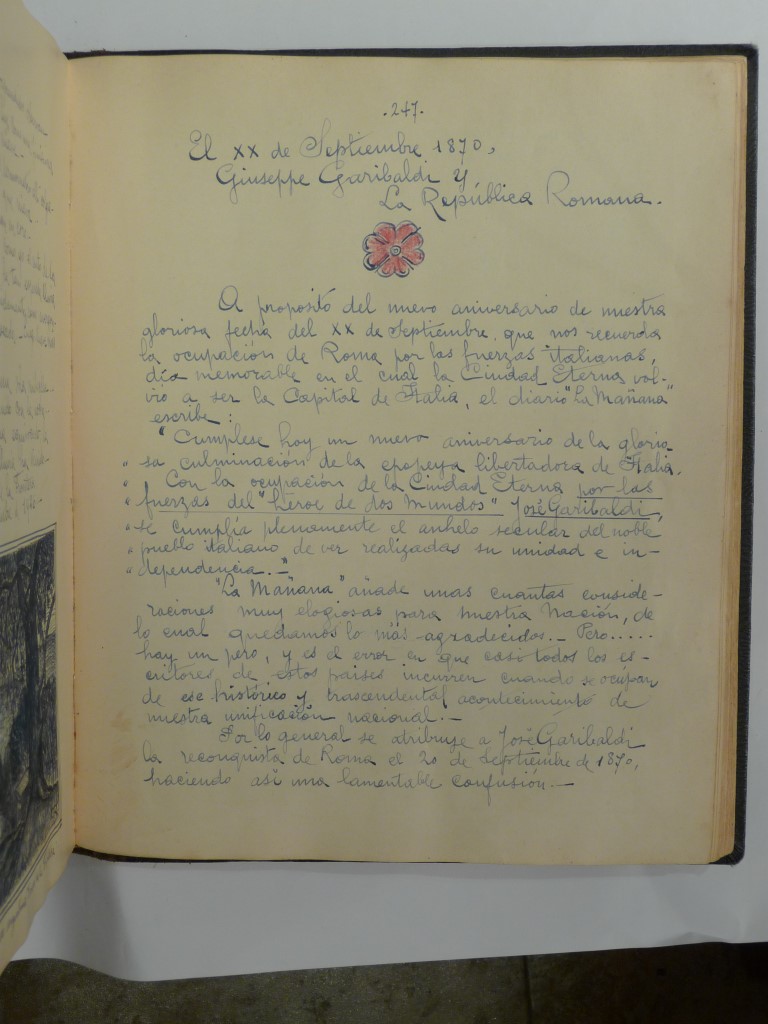 .247.
El XX de Septiembre 1870,
Giuseppe Garibaldi y
La República Romana.
A proposito del nuevo aniversario de nuestra
gloriosa fecha del XX de Septiembre, que nos recuerda
la ocupación de Roma por las fuerzas italianas,
día memorable en el cual la Ciudad Eterna vol-
vió a ser la Capital de Italia, el diario "La Mañana"
escribe:
"Cumplese hoy un nuevo aniversario de la glorio
" sa culminación de la epopeya libertadora de Italia.
" Con la ocupación de la Ciudad Eterna por las
" fuerzas del "heroe de dos mundos" José Garibaldi,
" se cumplía plenamente el anhelo secular del noble
" pueblo italiano, de ver realizadas su unidad e in-
" dependencia.-"
"La Mañana" añade unas cuantas conside-
raciones muy elogiosas para nuestra Nación, de
lo cual quedamos lo más agradecidos.- Pero.....
hay un pero, y es el error en que casi todos los es-
critores de estos paises incurren cuando se ocupan
de ese histórico y trascendental acontecimiento de
nuestra unificación nacional.-
Por lo general se atribuye a José Garibaldi
la reconquista de Roma el 20 de Septiembre de 1870,
haciendo así una lamentable confusión.-